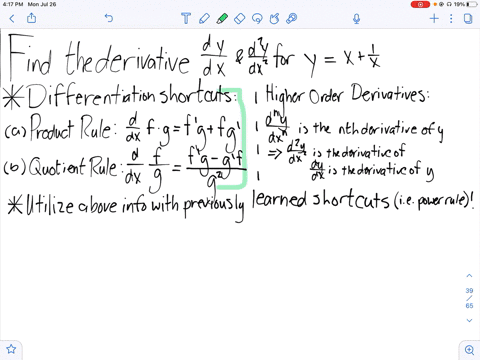 4:17 PM Mon Jul 26
19%
Find the derivative dy/dx & d²y/dx² for y = x + 1/x
* Differentiation shortcuts:
(a) Product Rule: d/dx f·g = f'g + fg'
(b) Quotient Rule: d/dx f/g = f'g - g'f / g²
| Higher Order Derivatives:
| dⁿy/dxⁿ is the nth derivative of y
| ⇒ d²y/dx² is the derivative of
| dy/dx is the derivative of y
* Utilize above info with previously learned shortcuts (i.e. power rule)!
39
/
65